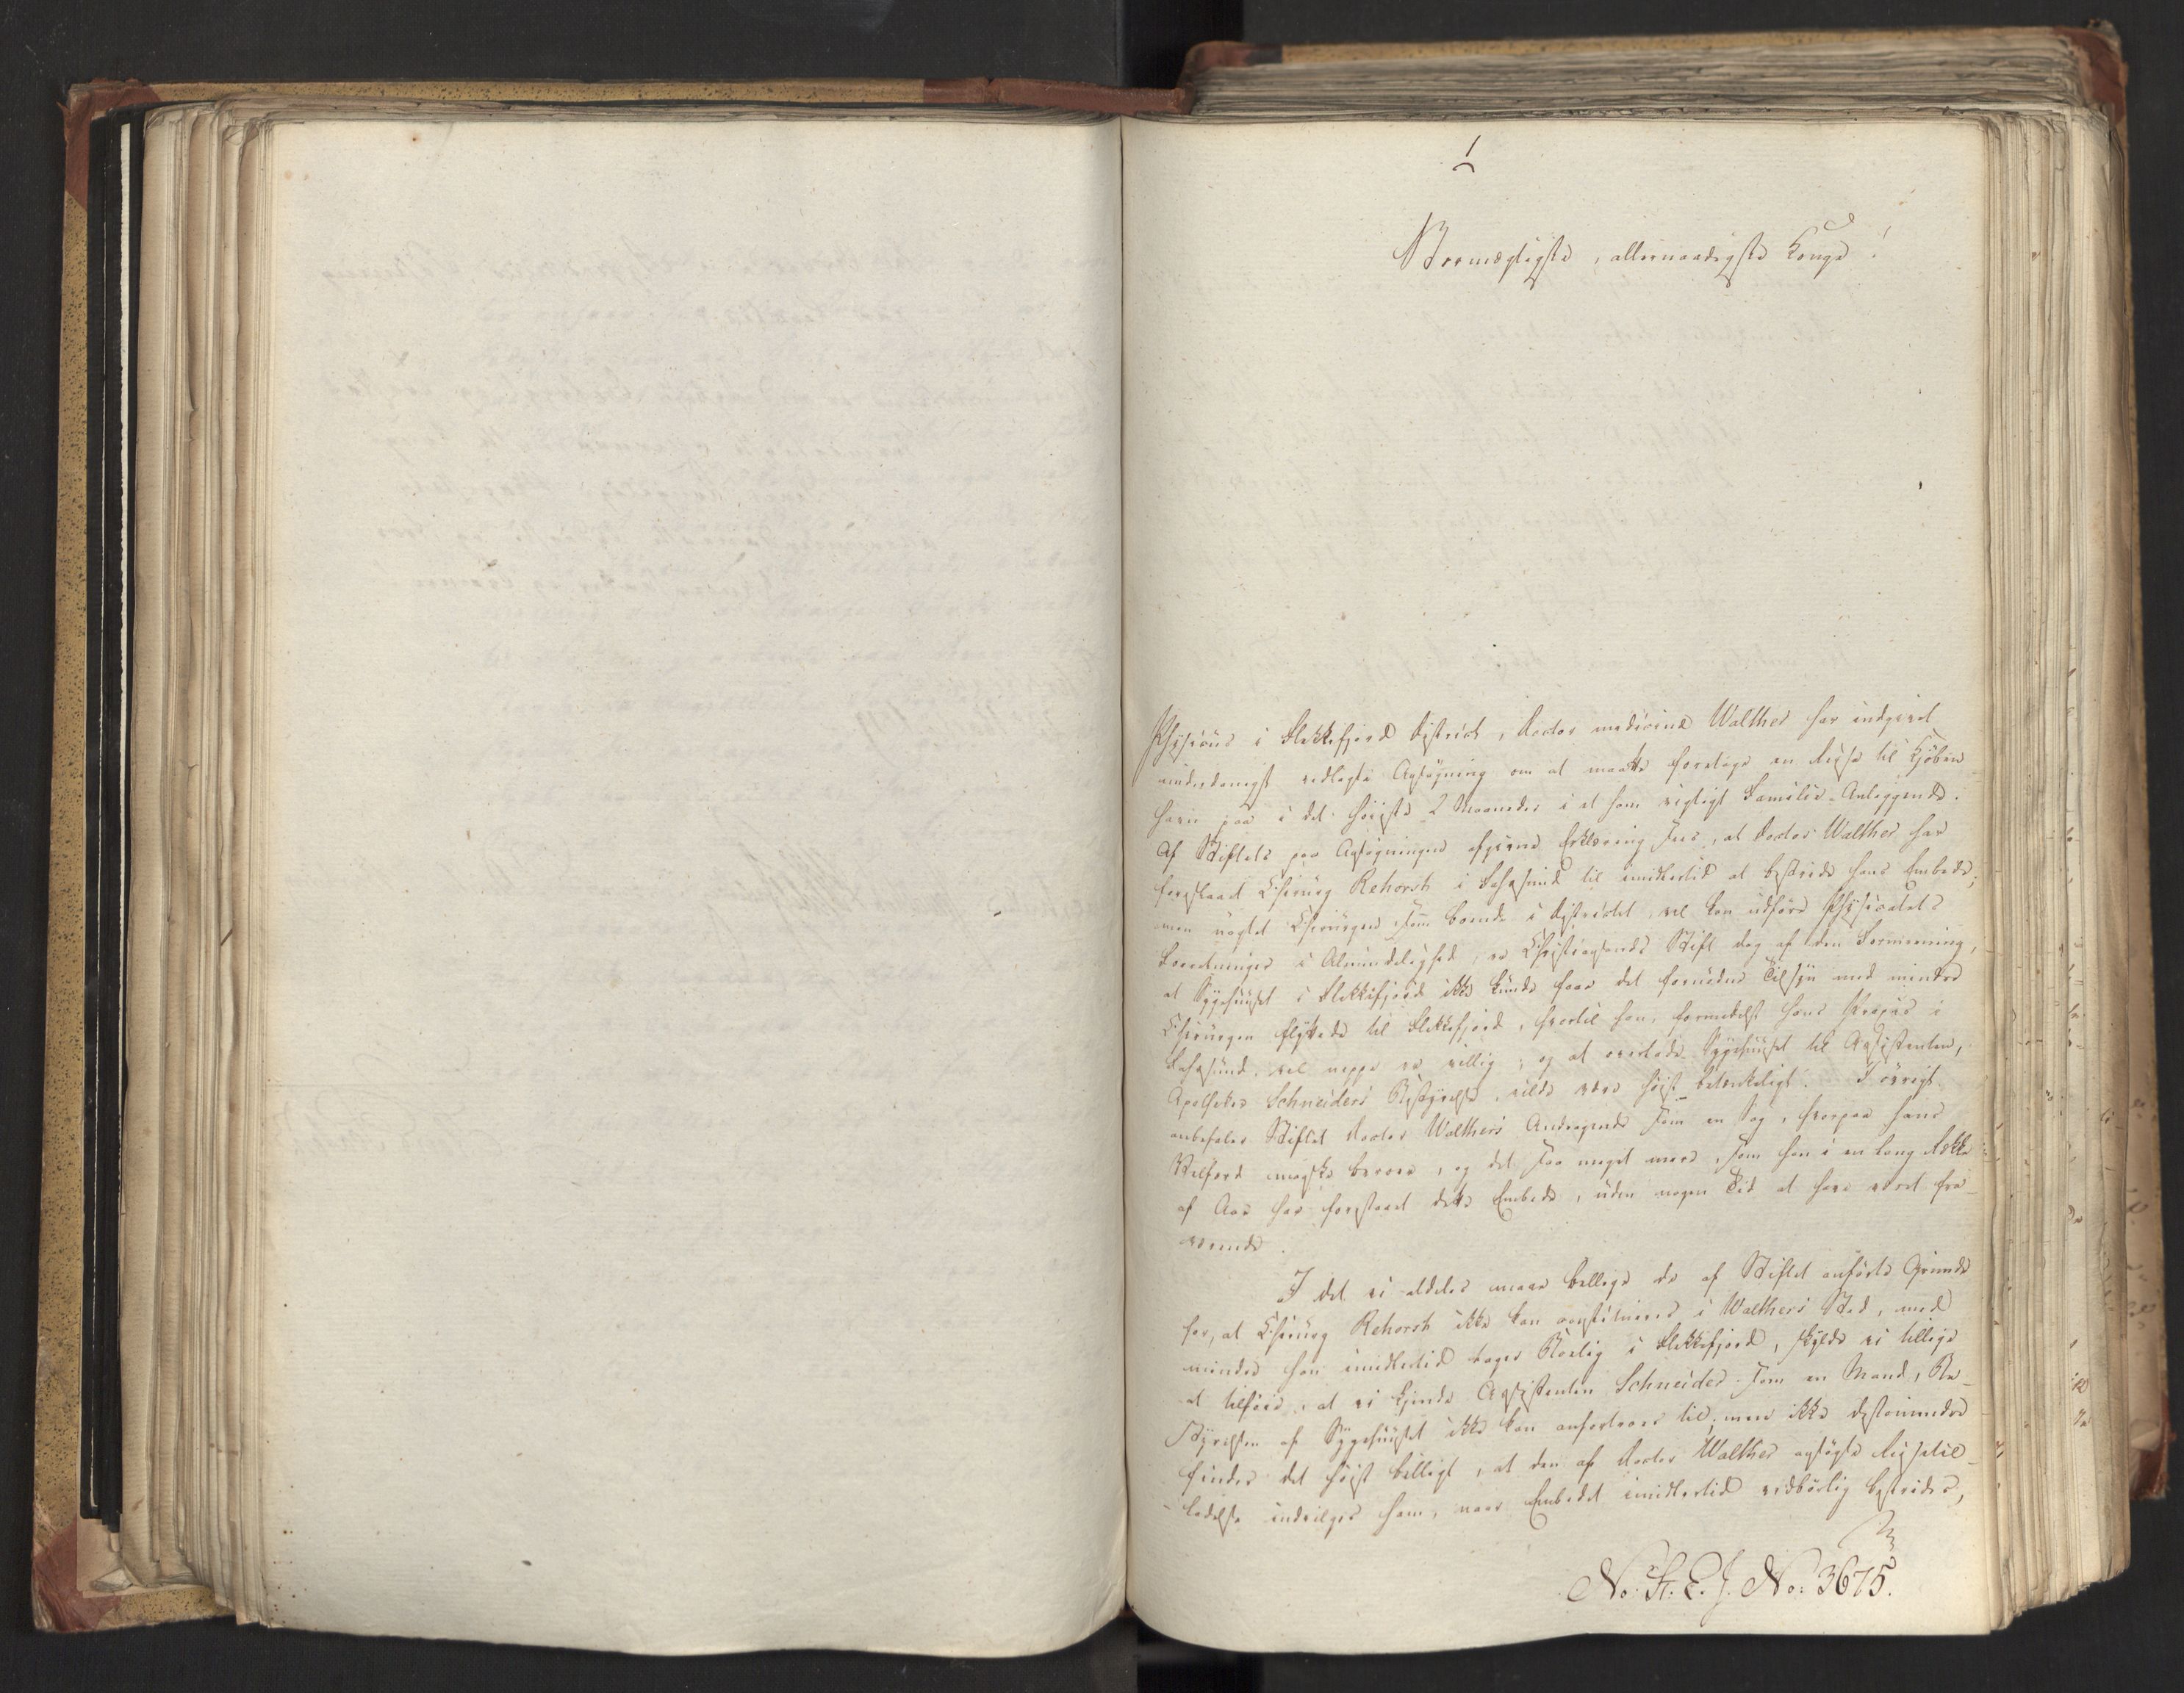 1
Stormægtigste, allernaadigste Konge!
Physicus i Flekkefjord District, Doctor medicinæ Walther har indgivet
underdanigst vedlagte Ansøgning om at maatte foretage en Reise til Kjøben-
havn paa i det høieste 2 Maaneder i et ham vigtigt Familie-Anliggende.
Af Stiftets paa Ansøgningen afgivne Erklæring sees, at Doctor Walther har
foreslaaet Chirurg Rehorst i Farsund til imidlertid at bestride hans Embede;
men uagtet Chirurgen som boende i Districtet vel kan udføre Physicatets
Forretninger i Almindelighed, er Christiansands Stift dog af den Formening,
at Sygehuset i Flekkefjord ikke kunde faae det fornødne Tilsyn med mindre
Chirurgen flyttede til Flekkefjord, hvortil han, formedelst hans Praxis i
Farsund, vel neppe er villig; og at overlade Sygehuset til Assistenten,
Apotheker Schneiders Bestyrelse, vilde være høist betænkeligt. I øvrigt
anbefaler Stiftet Doctor Walthers Andragende som en Sag, hvorpaa hans
Velfærd maaske beroer, og det saa meget mere, som han i en lang Række
af Aar har forestaaet dette Embede, uden nogen Tid at have været fra-
værende.
I det vi aldeles maae billige de af Stiftet anførte Grunde
for, at Chirurg Rehorst ikke kan constitueres i Walthers Sted, med
mindre han imidlertid tager Bolig i Flekkefjord, skulde vi tillige
at tilføie, at vi kjende Assistenten Schneider som en Mand, Be-
styrelsen af Sygehuset ikke kan anfortroes til; men ikke destomindre
finder det høist billigt, at den af Doctor Walther ansøgte Reisetil-
ladelse indvilges ham, naar Embedet imidlertid vedbørlig bestrides,
No. St. E. J. No: 3675.